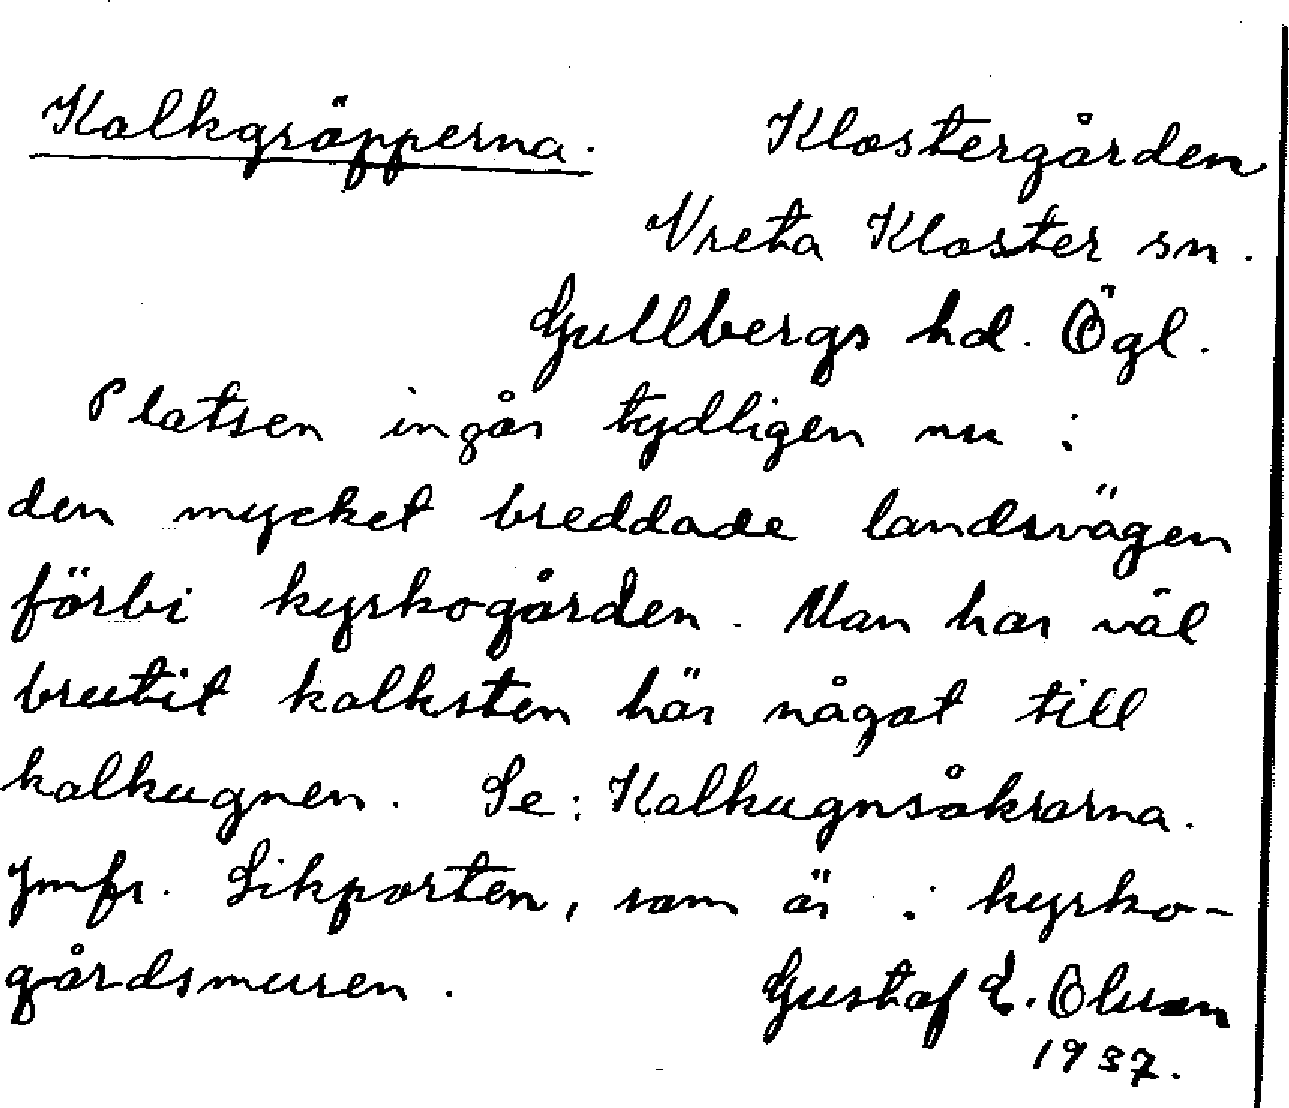 Kalkgröpperna. Klostergården
Vreta Kloster sn.
Gullbergs hd. Ögl.
Platsen ingår tydligen nu i
den mycket breddade landsvägen
förbi kyrkogården. Man har väl
brutit kalksten här något till
kalkugnen. Se: Kalkugnsåkrarna.
Jmfr. Likporten, som är i kyrko-
gårdsmuren. Gustaf E. Olsson
1937.